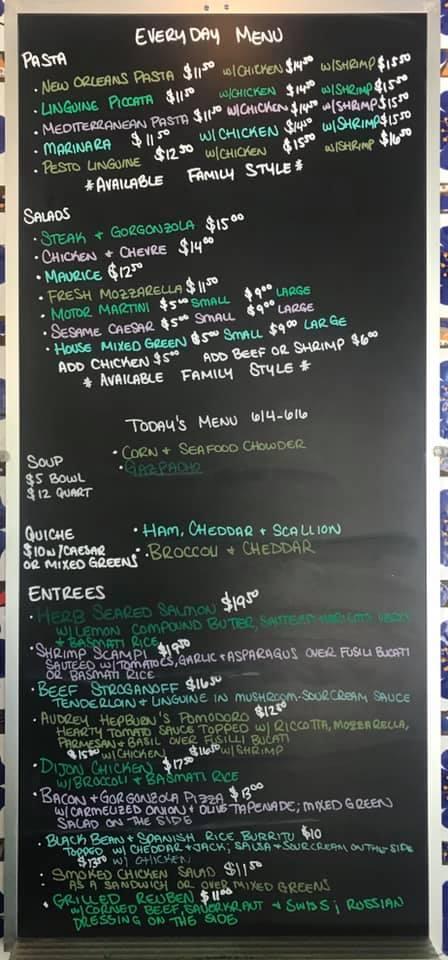 EVERYDAY MENU
PASTA
• NEW ORLEANS PASTA $11.50 W/CHICKEN $14.50 W/SHRIMP $15.50
• LINGUINE PICCATA $11.50 W/CHICKEN $14.50 W/SHRIMP $15.50
• MEDITERRANEAN PASTA $11.50 W/CHICKEN $14.50 W/SHRIMP $15.50
• MARINARA $11.50 W/CHICKEN $14.50 W/SHRIMP $15.50
• PESTO LINGUINE $12.50 W/CHICKEN $15.50 W/SHRIMP $16.50
*AVAILABLE FAMILY STYLE*
SALADS
• STEAK + GORGONZOLA $15.00
• CHICKEN + CHEVRE $14.00
• MAURICE $12.50
• FRESH MOZZARELLA $11.50
• MOTOR MARTINI $5.00 SMALL $9.00 LARGE
• SESAME CAESAR $5.00 SMALL $9.00 LARGE
• HOUSE MIXED GREEN $5.00 SMALL $9.00 LARGE
ADD CHICKEN $5.00 ADD BEEF OR SHRIMP $6.00
* AVAILABLE FAMILY STYLE *
TODAY'S MENU 6/4-6/6
SOUP • CORN + SEAFOOD CHOWDER
$5 BOWL • GAZPACHO
$12 QUART
QUICHE • HAM, CHEDDAR + SCALLION
$10 W/CAESAR • BROCCOLI + CHEDDAR
OR MIXED GREENS
ENTREES
• HERB SEARED SALMON $19.50
W/LEMON COMPOUND BUTTER, SAUTEED HARICOTS VERTS
+ BASMATI RICE
• SHRIMP SCAMPI $19.50
SAUTEED W/TOMATOES, GARLIC + ASPARAGUS OVER FUSILI BUCATI
OR BASMATI RICE
• BEEF STROGANOFF $16.50
TENDERLOIN + LINGUINE IN MUSHROOM-SOUR CREAM SAUCE
• AUDREY HEPBURN'S POMODORO $12.50
HEARTY TOMATO SAUCE TOPPED W/RICCOTTA, MOZZARELLA,
PARMESAN + BASIL OVER FUSILLI BUCATI
$15.50 W/CHICKEN $16.50 W/SHRIMP
• DIJON CHICKEN $17.50
W/BROCCOLI + BASMATI RICE
• BACON + GORGONZOLA PIZZA $13.00
W/CARMELIZED ONION + OLIVE TAPENADE; MIXED GREEN
SALAD ON THE SIDE
• BLACK BEAN + SPANISH RICE BURRITO $10
TOPPED W/CHEDDAR + JACK; SALSA + SOUR CREAM ON THE SIDE
$13.50 W/ CHICKEN
• SMOKED CHICKEN SALAD $11.50
AS A SANDWICH OR OVER MIXED GREENS
• GRILLED REUBEN $11.00
W/CORNED BEEF, SAUERKRAUT + SWISS; RUSSIAN
DRESSING ON THE SIDE